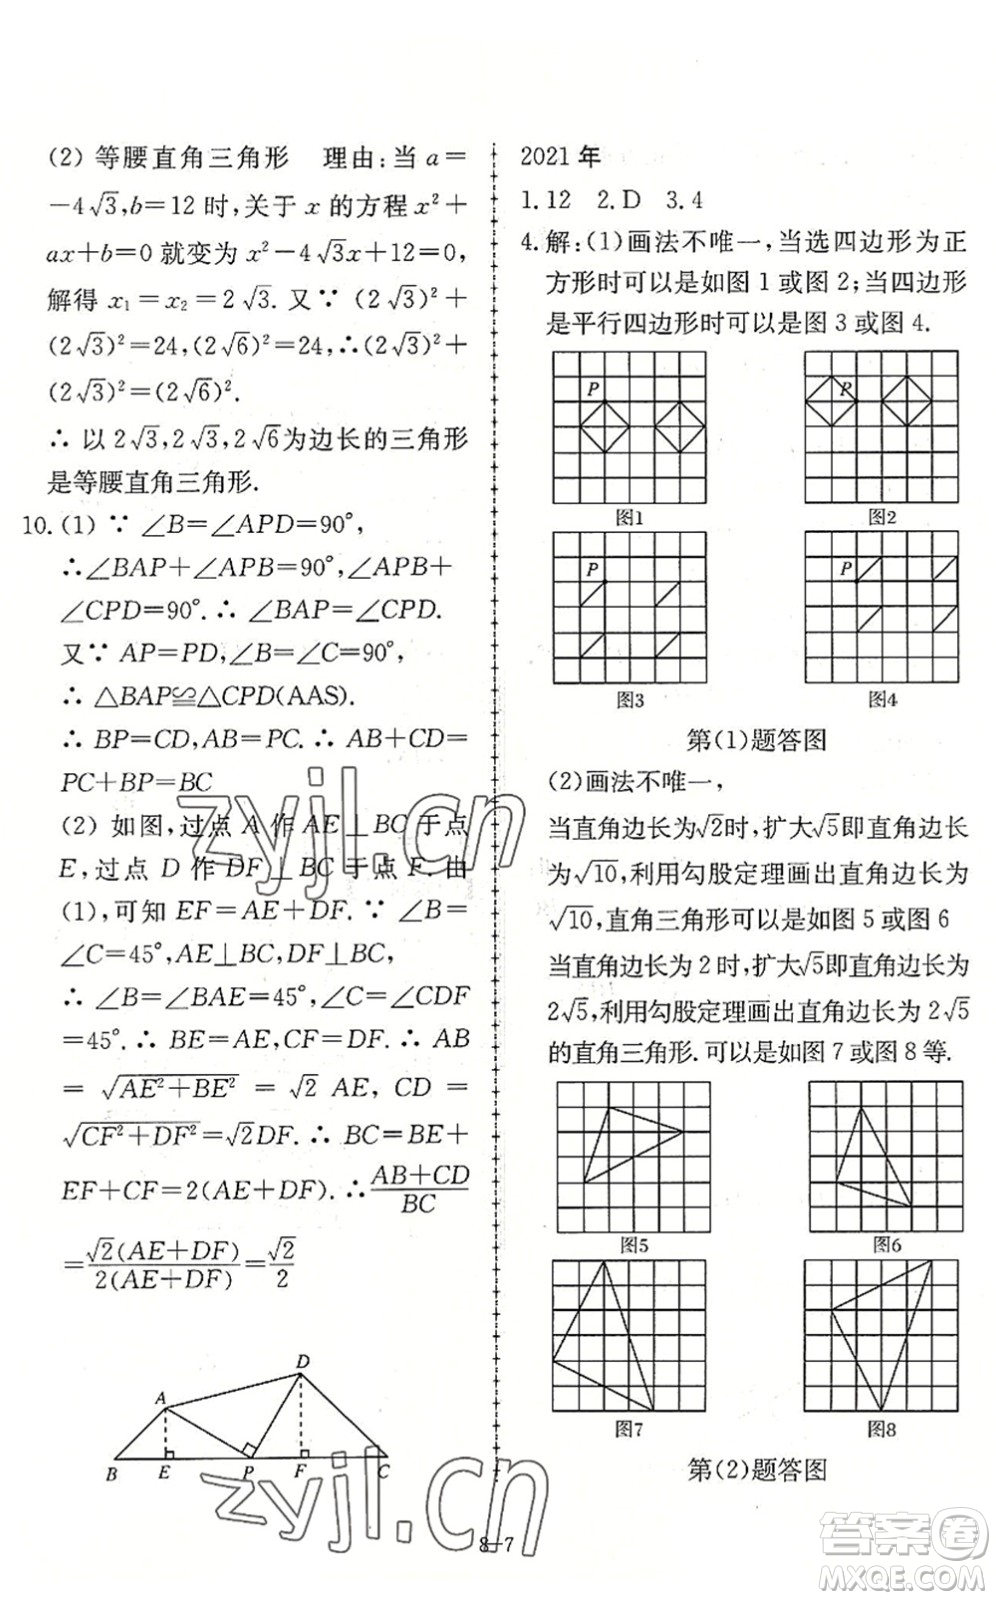 (2) 等腰直角三角形　理由:当 a=
-4√3,b=12 时,关于 x 的方程 x²+
ax+b=0 就变为 x²-4√3x+12=0,
解得 x₁=x₂=2√3. 又∵ (2√3)²+
(2√3)²=24,(2√6)²=24,∴(2√3)²+
(2√3)²=(2√6)².
∴ 以 2√3,2√3,2√6为边长的三角形
是等腰直角三角形.
10.(1) ∵ ∠B=∠APD=90°,
∴∠BAP+∠APB=90°,∠APB+
∠CPD=90°.∴ ∠BAP=∠CPD.
又∵ AP=PD,∠B=∠C=90°,
∴ △BAP≌△CPD(AAS).
∴ BP=CD,AB=PC.∴ AB+CD=
PC+BP=BC
(2) 如图,过点 A 作 AE⊥BC 于点
E,过点 D 作 DF⊥BC 于点 F. 由
(1),可知 EF=AE+DF.∵ ∠B=
∠C=45°,AE⊥BC,DF⊥BC,
∴ ∠B=∠BAE=45°,∠C=∠CDF
=45°.∴ BE=AE,CF=DF.∴ AB
= √(AE²+BE²) = √2 AE, CD =
√(CF²+DF²)=√2DF.∴ BC=BE+
EF+CF=2(AE+DF).∴(AB+CD)/BC
=√2(AE+DF)/2(AE+DF)=√2/2
A
D
B
E
P
F
C
2021年
1.12　2.D　3.4
4.解:(1)画法不唯一,当选四边形为正
方形时可以是如图 1 或图 2;当四边形
是平行四边形时可以是图 3 或图 4.
P
P
图1
图2
P
P
图3
图4
第(1)题答图
(2)画法不唯一,
当直角边长为√2时,扩大√5即直角边长
为√10,利用勾股定理画出直角边长为
√10,直角三角形可以是如图 5 或图 6
当直角边长为 2 时,扩大√5即直角边长为
2√5,利用勾股定理画出直角边长为 2√5
的直角三角形.可以是如图 7 或图 8 等.
图5
图6
图7
图8
第(2)题答图
8-7
zyjl.cn
zyjl.cn
答案卷
MXQE.COM